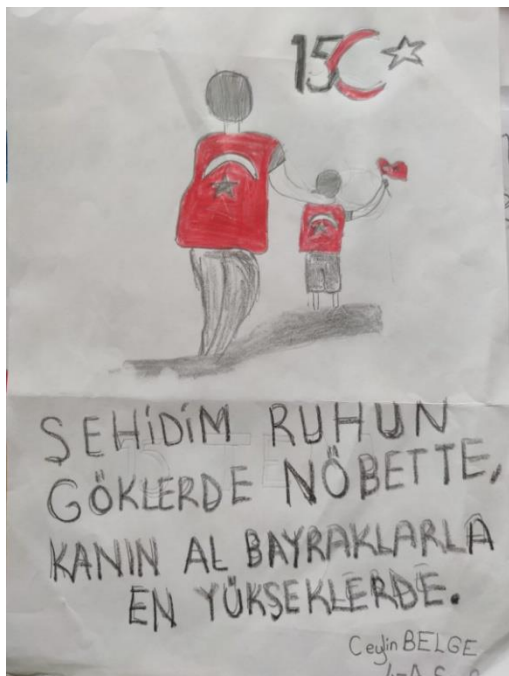 15
ŞEHİDİM RUHUN
GÖKLERDE NÖBETTE,
KANIN AL BAYRAKLARLA
EN YÜKSEKLERDE.
Ceylin BELGE